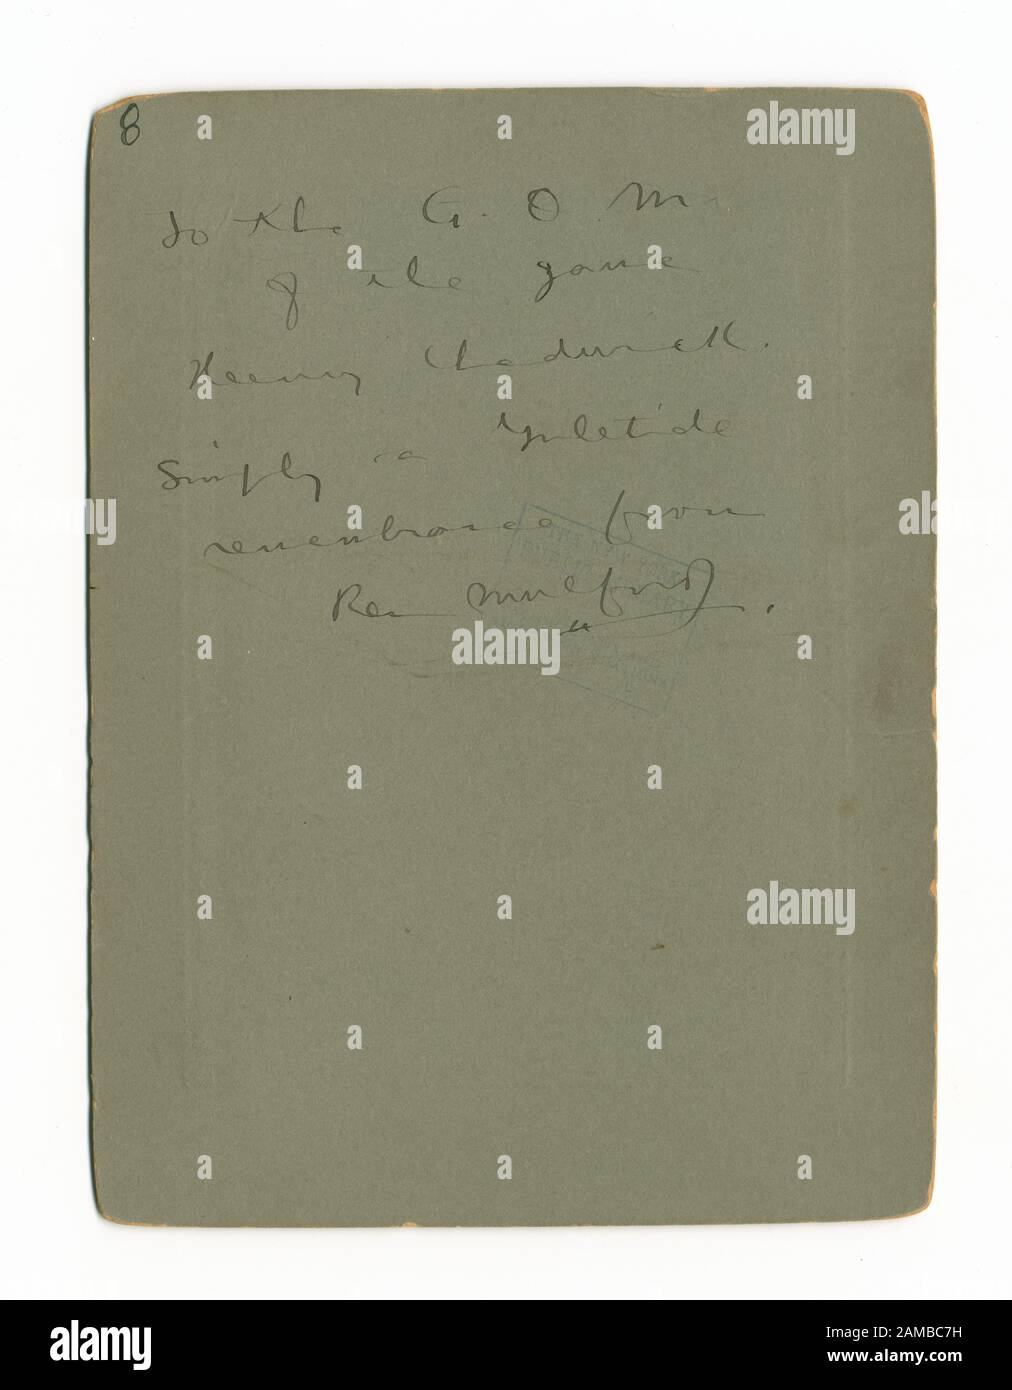 8
To the G. O. M.
of the game
Henry Chadwick.
Simply a Yuletide
remembrance from
Ren Mulford Jr.
alamy
alamy
alamy
alamy
Image ID: 2AMBC7H
www.alamy.com